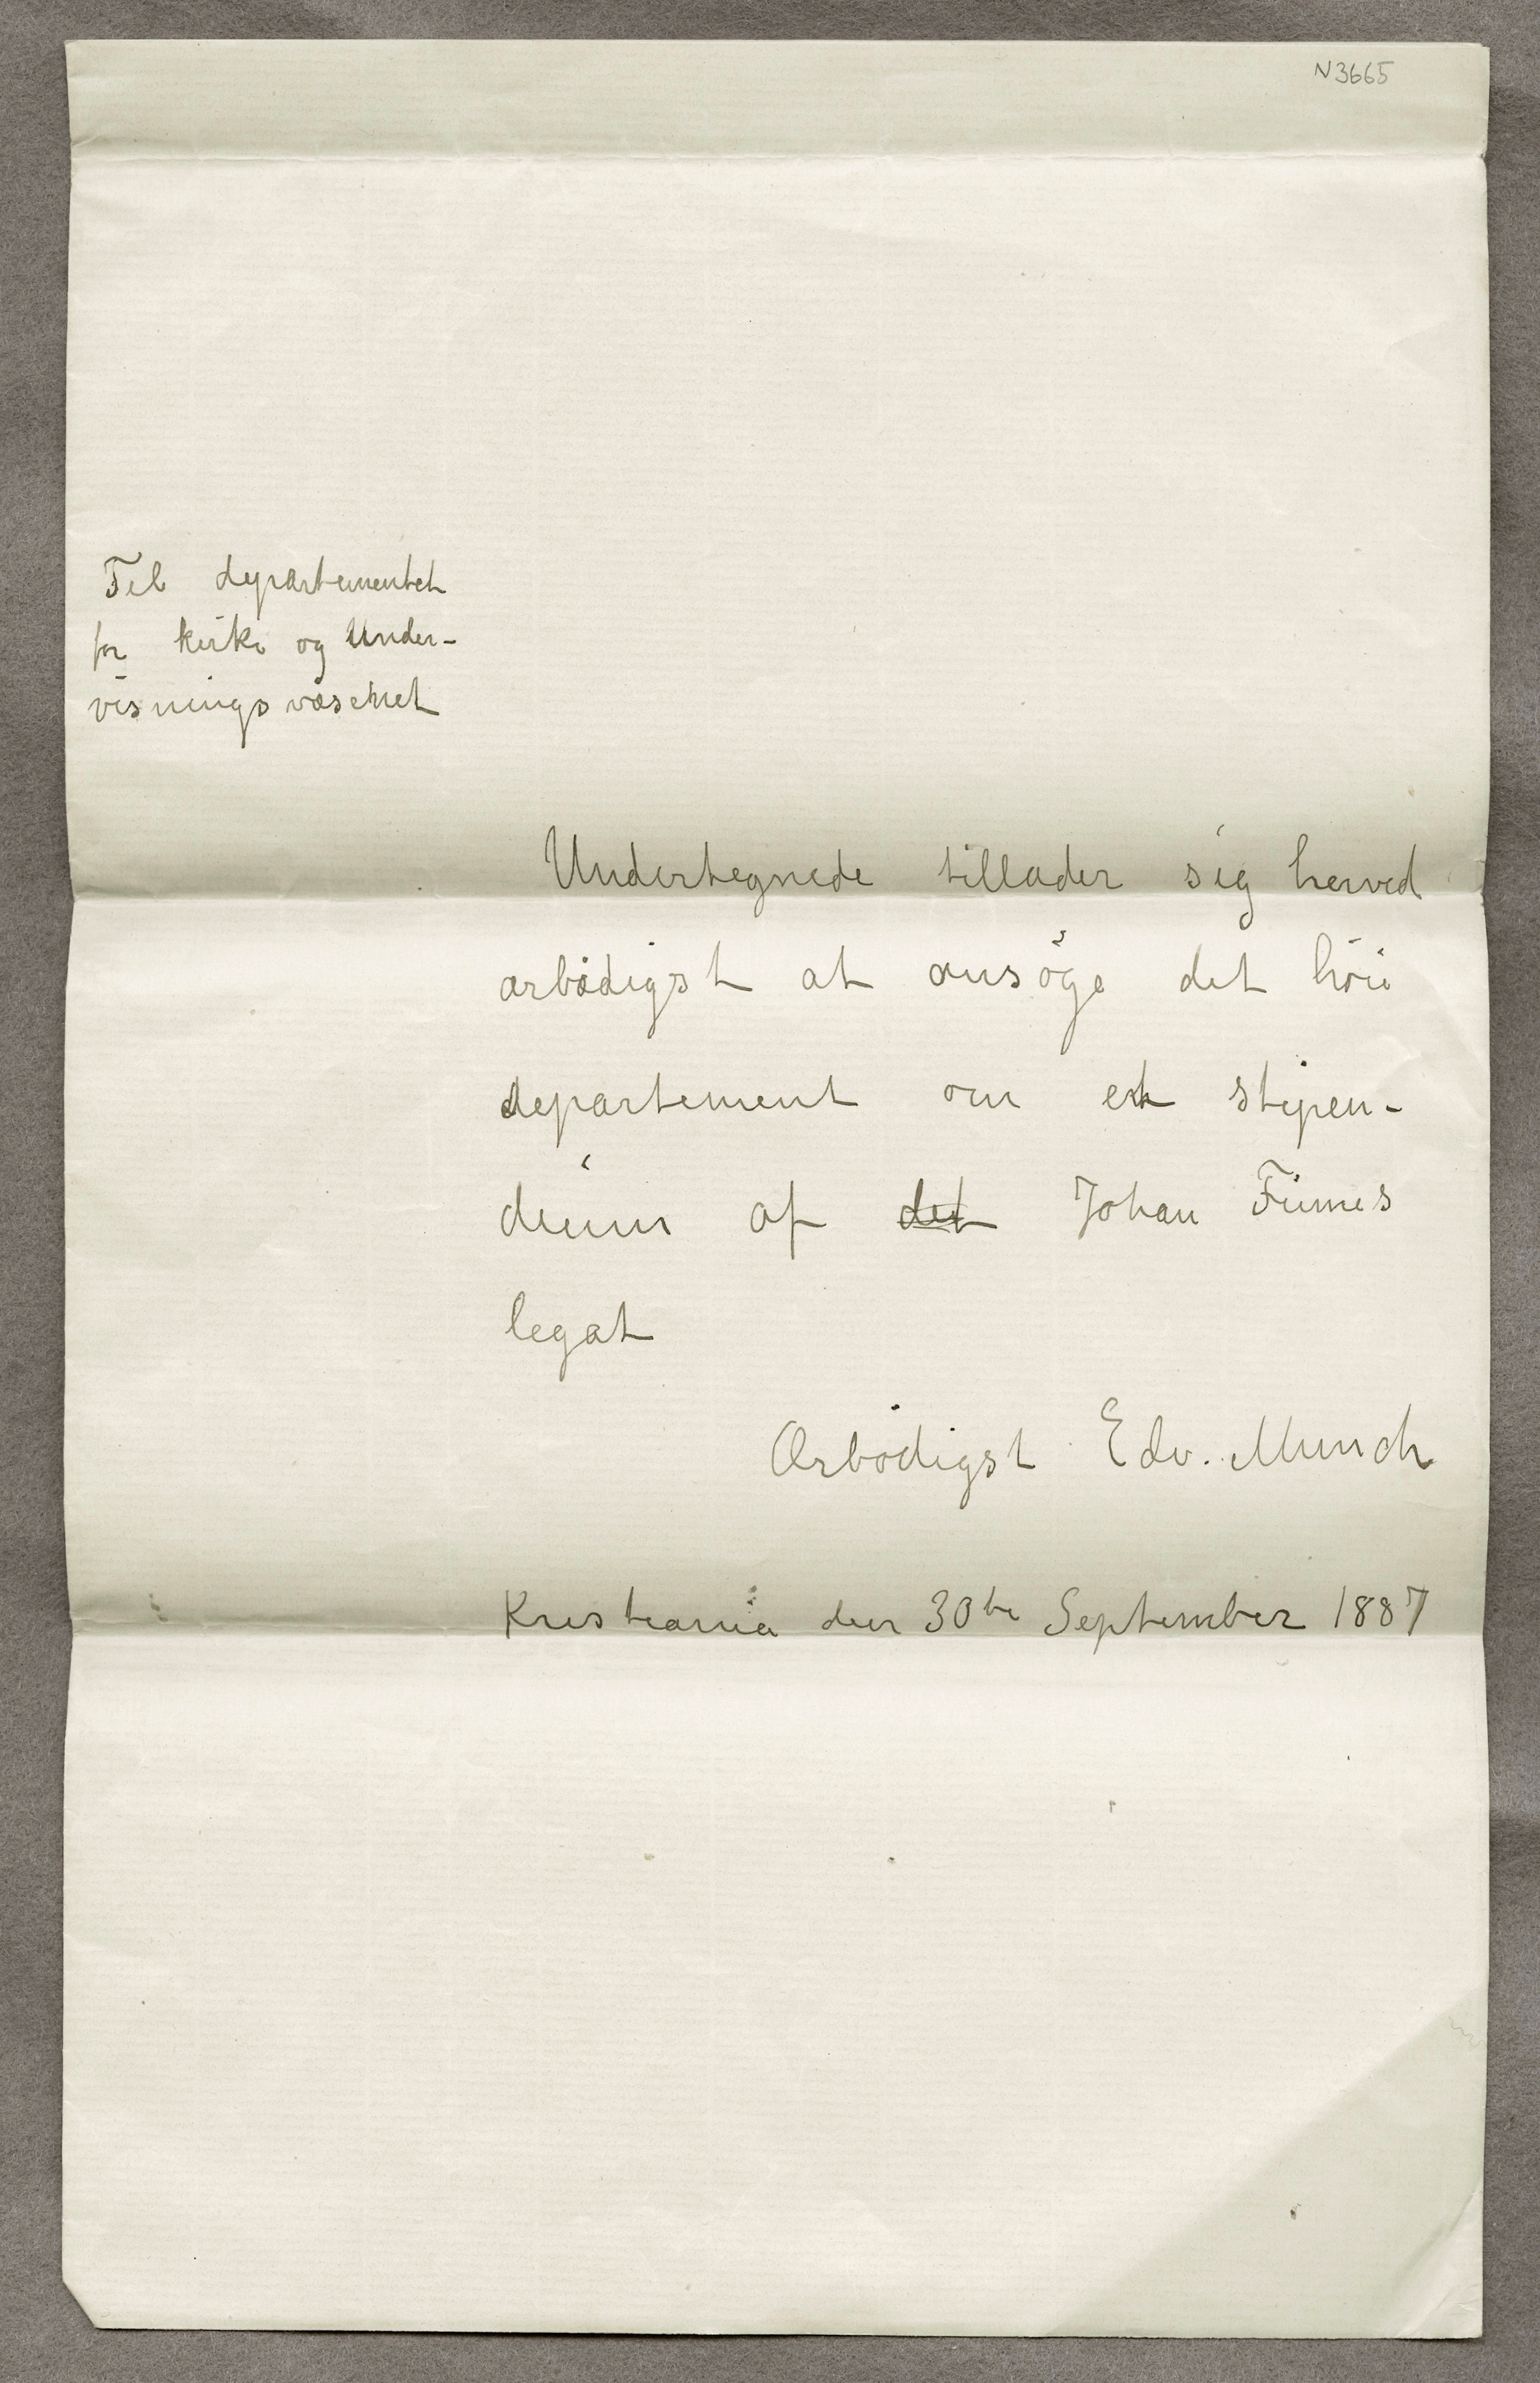 N3665
Til departementet
for kirke og Under-
visningsvæsenet
Undertegnede tillader sig herved
ærbödigst at ansöge det höie
departement om et stipen-
dium af det Johan Finnes
legat
Ærbödigst Edv. Munch
Kristiania den 30te September 1887